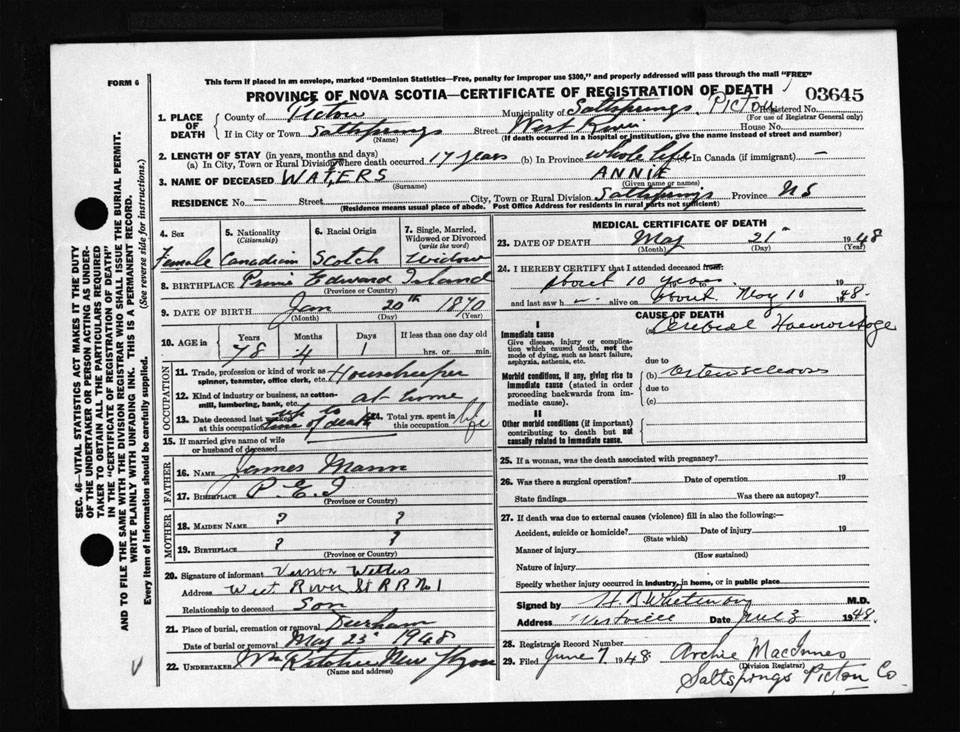 FORM 6
This form if placed in an envelope, marked "Dominion Statistics—Free, penalty for improper use $300," and properly addressed will pass through the mail "FREE"
PROVINCE OF NOVA SCOTIA—CERTIFICATE OF REGISTRATION OF DEATH
03645
1. PLACE OF DEATH
County of Pictou Municipality of Saltsprings, Pictou Registered No.
(For use of Registrar General only)
If in City or Town Saltsprings Street West River House No.
(Name) (If death occurred in a hospital or institution, give the name instead of street and number)
2. LENGTH OF STAY (in years, months and days)
(a) In City, Town or Rural Division where death occurred 17 years (b) In Province whole life In Canada (if immigrant) —
3. NAME OF DECEASED WATERS ANNIE
(Surname) (Given name or names)
RESIDENCE No. — Street City, Town or Rural Division Saltsprings Province NS
(Residence means usual place of abode. Post Office Address for residents in rural parts not sufficient)
4. Sex
Female
5. Nationality (Citizenship)
Canadian
6. Racial Origin
Scotch
7. Single, Married, Widowed or Divorced (write the word)
Widow
8. BIRTHPLACE Prince Edward Island
(Province or Country)
9. DATE OF BIRTH Jan 20th 1870
(Month) (Day) (Year)
10. AGE in Years Months Days If less than one day old
78 4 1 hrs. or min
OCCUPATION
11. Trade, profession or kind of work as spinner, teamster, office clerk, etc. Housekeeper
12. Kind of industry or business, as cotton-mill, lumbering, bank, etc. at home
13. Date deceased last worked at this occupation up to time of death
14. Total yrs. spent in this occupation life
15. If married give name of wife or husband of deceased
FATHER
16. NAME James Mann
17. BIRTHPLACE P.E.I
(Province or Country)
MOTHER
18. MAIDEN NAME ? ?
19. BIRTHPLACE ? ?
(Province or Country)
20. Signature of informant Vernon
Address West River St R R No 1
Relationship to deceased Son
21. Place of burial, cremation or removal Durham
Date of burial or removal May 23 1948
22. UNDERTAKER New
(Name and address)
MEDICAL CERTIFICATE OF DEATH
23. DATE OF DEATH May 21 1948
(Month) (Day) (Year)
24. I HEREBY CERTIFY that I attended deceased from:
about 10 years 19
and last saw h — alive on about May 10 1948.
CAUSE OF DEATH
I
Immediate cause
Give disease, injury or complication which caused death, not the mode of dying, such as heart failure, asphyxia, asthenia, etc.
(a) Cerebral Haemorrhage
due to
Morbid conditions, if any, giving rise to immediate cause (stated in order proceeding backwards from immediate cause).
(b) Arteriosclerosis
due to
(c)
II
Other morbid conditions (if important) contributing to death but not causally related to immediate cause.
25. If a woman, was the death associated with pregnancy?
26. Was there a surgical operation? Date of operation 19
State findings Was there an autopsy?
27. If death was due to external causes (violence) fill in also the following:—
Accident, suicide or homicide? Date of injury 19
(State which)
Manner of injury
(How sustained)
Nature of injury
Specify whether injury occurred in industry, in home, or in public place
Signed by M.D.
Address Westville Date June 3 1948.
28. Registrar's Record Number
29. Filed June 7 1948 Archie MacInnes
(Division Registrar)
Saltsprings Pictou Co
SEC. 46—VITAL STATISTICS ACT MAKES IT THE DUTY
OF THE UNDERTAKER OR PERSON ACTING AS UNDER-
TAKER TO OBTAIN ALL THE PARTICULARS REQUIRED
IN THE "CERTIFICATE OF REGISTRATION OF DEATH"
AND TO FILE THE SAME WITH THE DIVISION REGISTRAR WHO SHALL ISSUE THE BURIAL PERMIT.
WRITE PLAINLY WITH UNFADING INK. THIS IS A PERMANENT RECORD.
Every item of information should be carefully supplied. (See reverse side for instructions.)